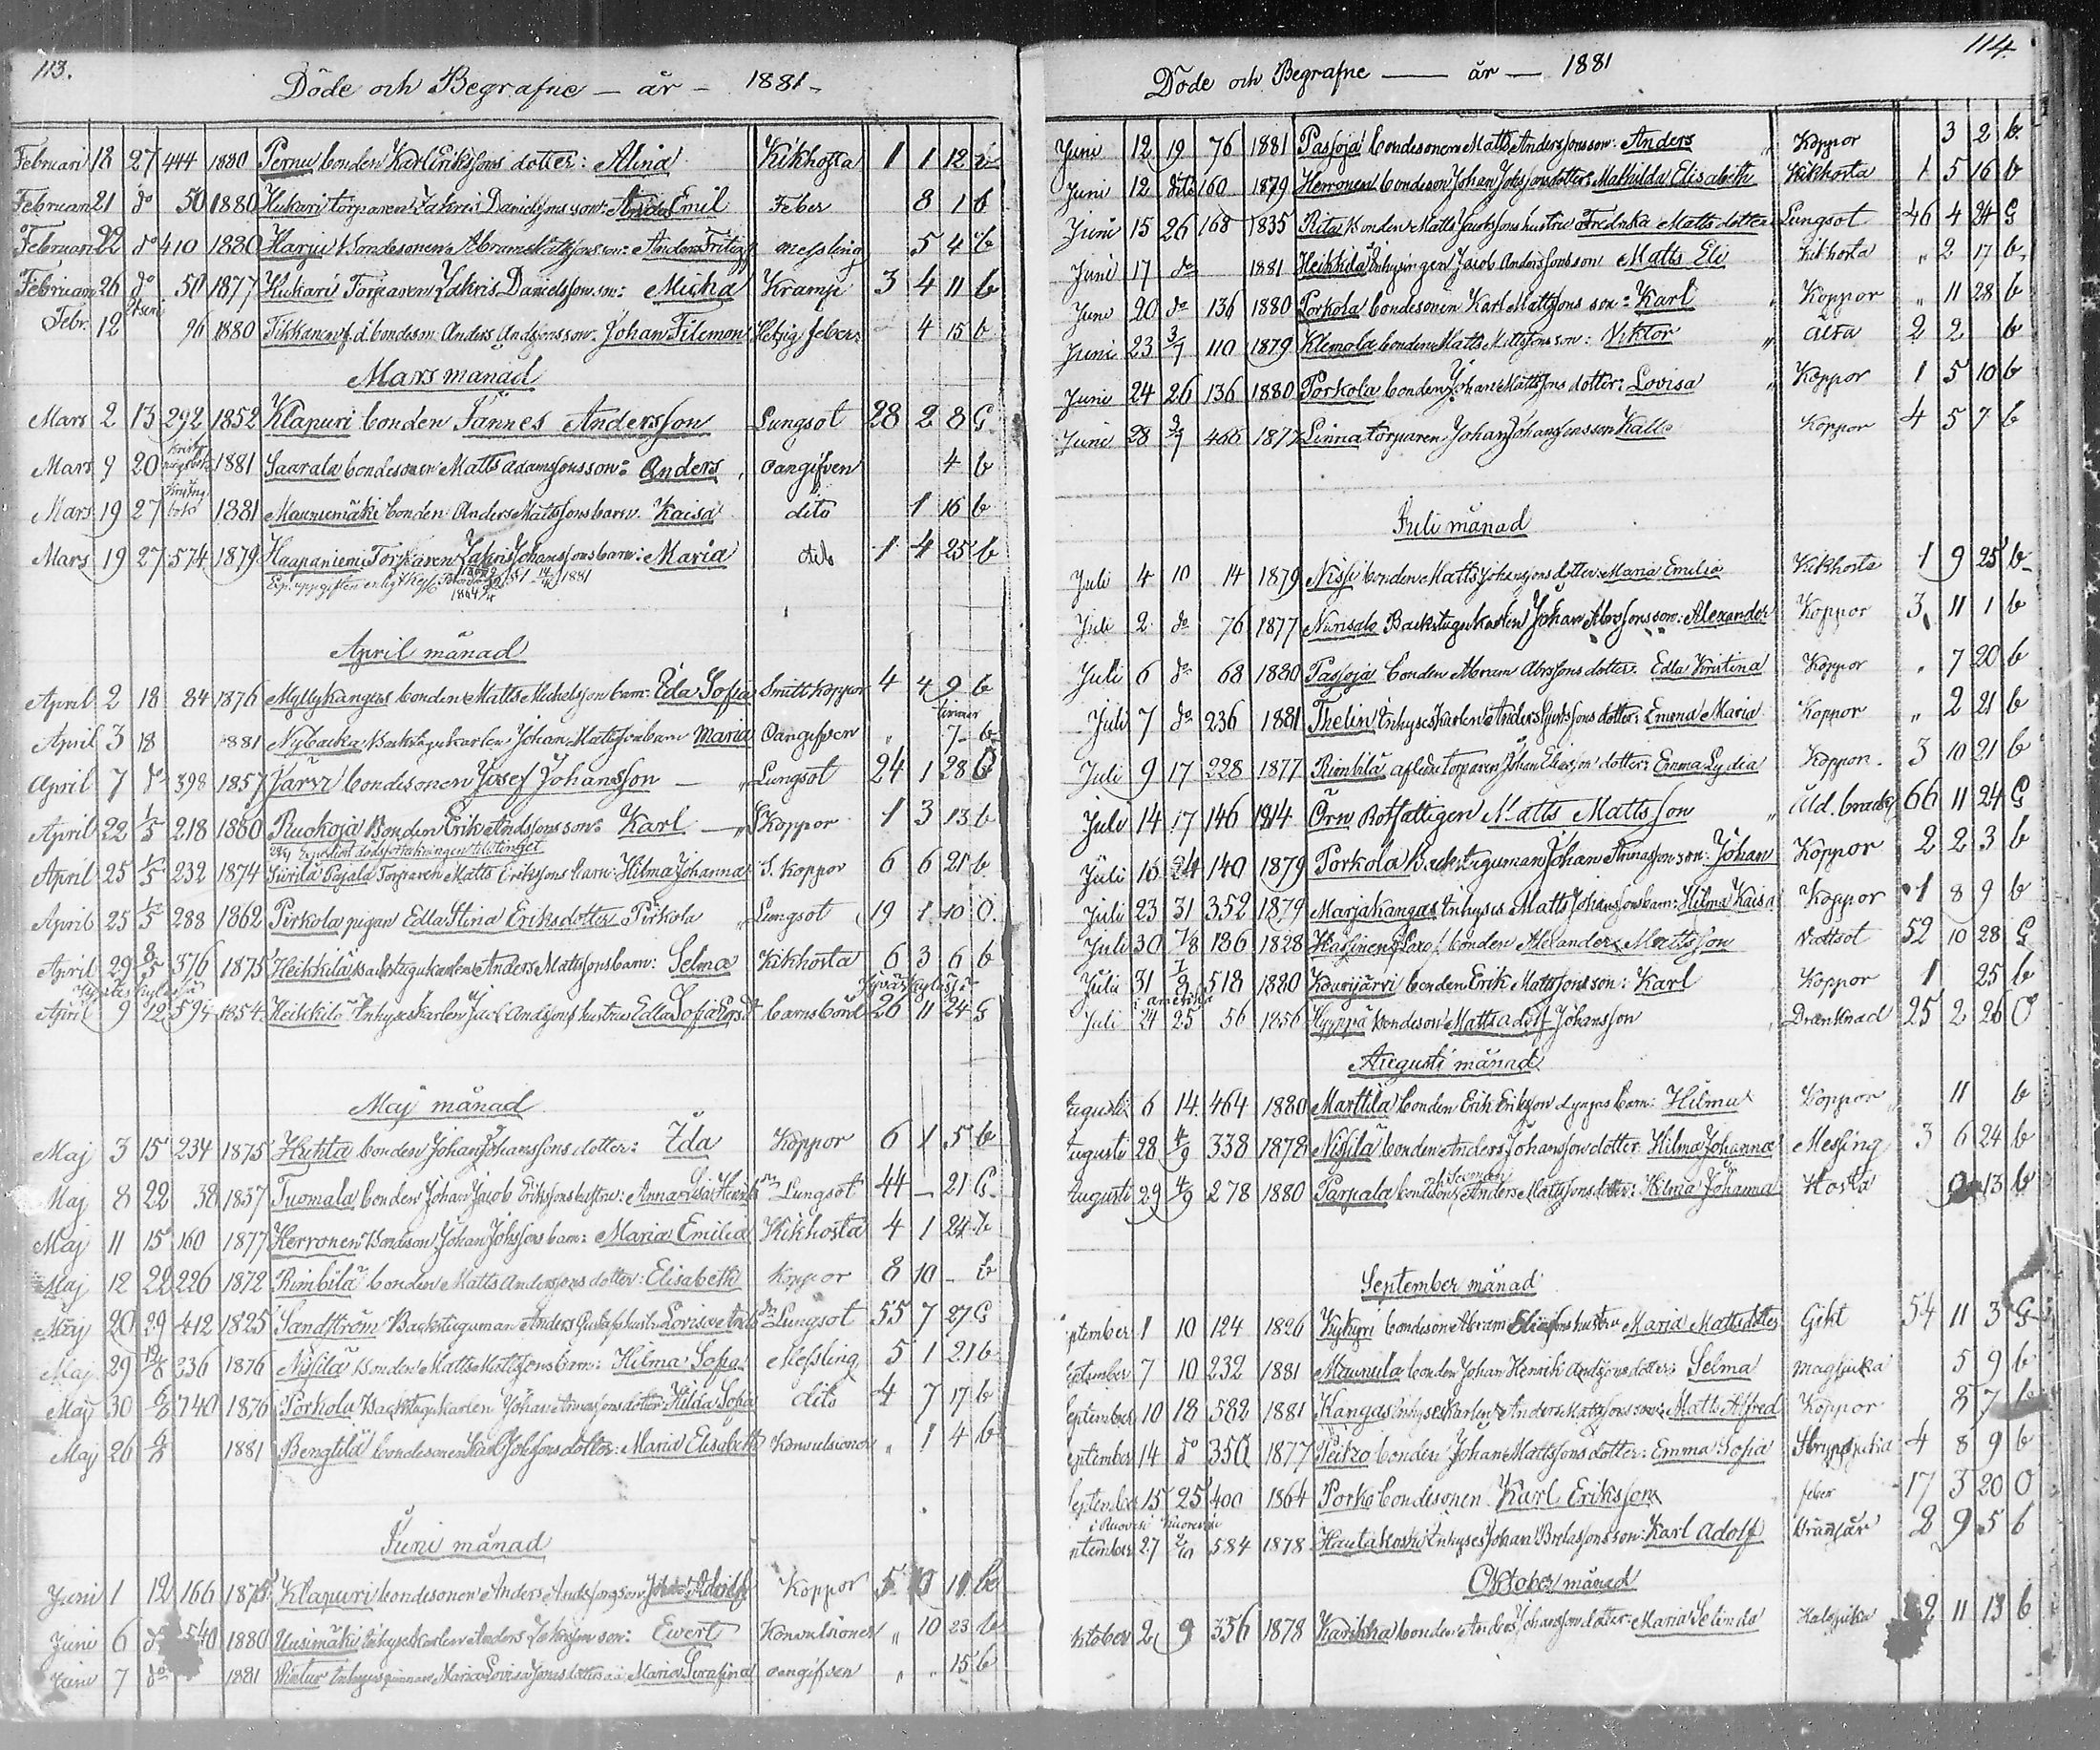 113.
Döde och Begrafne — år — 1881 —
Februari 18 27 444 1880 Pernu bonden Karl Erikssons dotter: Alina Kikhosta 1 1 12 b
Februari 21 do 50 1880 Hukari torparen Zakris Danielssons son: Emil Feber 8 1 b
Februari 22 do 410 1880 Harju Bondesonen Abram Mattssons son: Anders messling 5 4 b
Februari 26 do 50 1877 Hukari Torparen Zakris Danielsson son: Micha Kramp 3 4 11 b
Febr. 12 96 1880 Tikkanen f.d. bondeson Anders Andssons son: Johan Filemon Hetsig feber 4 15 b
Mars månad
Mars 2 13 292 1852 Klapuri bonden Jannes Andersson Lungsot 28 2 8 G
Mars 9 20 1881 Saarala bondesonen Matts Adamssons son: Anders oangifven 4 b
Mars 19 27 1881 Maunumäki bonden Anders Mattssons barn. Kaisa dito 1 16 b
Mars 19 27 574 1879 Haapaniemi Torparen Zakris Johanssons barn: Maria dito 1 4 25 b
1881
April månad
April 2 18 84 1876 Myllykangas bonden Matts Michelsson barn: Eda Sofia Smittkoppor 4 4 9 b
timmar
April 3 18 1881 Nybacka Backstugukarlen Johan Mattssons barn Maria Oangifven 7 b
April 7 do 398 1857 Jarvi bondesonen Josef Johansson — Lungsot 24 1 28 O
April 22 1/5 218 1880 Ruokoja Bonden Erik Andssons son: Karl — S Koppor 1 3 13 b
April 25 1/5 232 1874 Siirilä Pajala Torparen Matts Erikssons barn: Hilma Johanna S. Koppor 6 6 21 b
April 25 1/5 288 1862 Pirkola pigan Edla Stina Eriksdotter Pirkola Lungsot 19 1 10 O.
April 29 8/5 376 1875 Heikkilä Backstugukarlens Anders Mattssons barn: Selma Kikhosta 6 3 6 b
April 9 12 594 1854 Heikkilä Inhyseskarlen Jac. Andssons hustru Edla Sofia barnsbörd 26 11 24 G
Maj månad
Maj 3 15 234 1875 Huhta bonden Johan Johanssons dotter: Ida Koppor 6 1 5 b
Maj 8 22 38 1837 Tuomala bonden Johan Jacob Erikssons hustru: Anna Lisa Lungsot 44 — 21 G
Maj 11 15 160 1877 Herronen Bondson Johan Johssons barn: Maria Emilia Kikhosta 4 1 24 b
Maj 12 22 226 1872 Rimbilä bonden Matts Anderssons dotter: Elisabeth Koppor 8 10 — b
Maj 20 29 412 1825 Sandström Backstuguman Anders Gustafs hust: Lovisa Lungsot 55 7 27 G
Maj 29 236 1876 Nisilä Bonden Matts Mattssons barn: Hilma Sofia Messling 5 1 21 b
Maj 30 6/6 740 1876 Porkola Backstugukarlen Johan Annassons dotter Hilda Sofia dito 4 7 17 b
Maj 26 6/6 1881 Bengtilä bondesonen Karl Johssons dotter: Maria Elisabeth Konvulsioner „ 1 4 b
Juni månad
Juni 1 12 166 1875 Klapuri bondesonen Anders Andssons son Koppor 5
Juni 6 do 540 1880 Uusimäki Inhyseskarlen Anders Johnson son: Evert Konvulsioner „ 10 23 b
Juni 7 do 1881 Wintur Inhyseskvinnan Maria Lovisa Jonsdotters Maria Serafina oangifven „ „ 15 b
114.
Döde och Begrafne — år — 1881
Juni 12 19 76 1881 Pasoja bondesonen Matts Anderssons son: Anders Koppor 3 2 b
Juni 12 dito 160 1879 Herronen bondeson Johan Johssons dotter: Mathilda Elisabeth Kikhosta 1 5 16 b
Juni 15 26 168 1835 Rita Bonden Matts Jacobssons hustru Fredrika Mattsdotter Lungsot 46 4 24 G
Juni 17 do 1881 Heikkilä Inhysingen Jacob Anderssons son Matts Eli Kikhosta „ 2 17 b
Juni 20 do 136 1880 Porkola bondesonen Karl Mattssons son: Karl Koppor „ 11 28 b
Juni 23 3/7 110 1879 Klemola bonden Matts Mattssons son: Viktor Altra 2 2 b
Juni 24 26 136 1880 Porkola bonden Johan Mattssons dotter: Lovisa Koppor 1 5 10 b
Juni 28 3/7 466 1877 Linna torparen Johan Johanssons son Kalle Koppor 4 5 7 b
Juli månad
Juli 4 10 14 1879 Nissi bonden Matts Johanssons dotter: Maria Emilia Kikhosta 1 9 25 b
Juli 2 do 76 1877 Nurisalo Backstugukarlen Johan Abrssons son: Alexander Koppor 3 11 1 b
Juli 6 do 68 1880 Pasoja bonden Abram Abrssons dotter: Edla Kristina Koppor „ 7 20 b
Juli 7 do 236 1881 Thelin Inhyseskarlen Anders Gustssons dotter: Emma Maria Koppor „ 2 21 b
Juli 9 17 228 1877 Rimbilä aflidne torparen Johan Eliass dotter: Emma Lydia Koppor 3 10 21 b
Juli 14 17 146 1814 Örn Rotfattigen Matts Mattsson Åld. brack 66 11 24 G
Juli 16 24 140 1879 Porkola Backstuguman Johan Annassons son: Johan Koppor 2 2 3 b
Juli 23 31 352 1879 Marjakangas Inhyses Matts Johanssons barn: Hilma Kaisa Koppor 1 8 9 b
Juli 30 7/8 186 1828 Hassinen bonden Alexander Mattsson Vattsot 52 10 28 G
Juli 31 7/8 518 1880 Kourijärvi bonden Erik Mattssons son: Karl Koppor 1 25 b
i amerika
Juli 24 25 56 1856 Hyyppä Bondeson Matts Adolf Johansson Drunknad 25 2 26 O
Augusti månad
Augusti 6 14 464 1880 Marttila bonden Erik Eriksson Lyyjas barn: Hilma Koppor 11 b
Augusti 28 4/9 338 1878 Nisilä bonden Anders Johansson dotter Hilma Johanna Messling 3 6 24 b
Augusti 29 4/9 278 1880 Parpala bondsons Anders Mattssons dotter: Hilma Johanna Hosta 13 b
September månad
September 1 10 124 1826 Kykyri bondeson Abram Eliassons hustru Maria Mattsdotter Gikt 54 11 3 G
September 7 10 232 1881 Maunula bonden Johan Henrik Andssons dotter: Selma magsjuka 5 9 b
September 10 18 582 1881 Kangas Inhyseskarlen Anders Mattssons son: Matts Alfred Koppor 8 7 b
September 14 do 350 1877 Peitzo bonden Johan Mattssons dotter: Emma Sofia Strypsjuka 4 8 9 b
September 15 25 400 1864 Porko bondesonen Karl Eriksson feber 17 3 20 O
September 27 2/10 584 1878 Hautakoski Inhyses Johan Brelassons son: Karl Adolf 2 9 5 b
Oktober månad
Oktober 2 9 356 1878 Karikka bonden Anders Johansson dotter: Maria Selinda Halssjuka 2 11 13 b